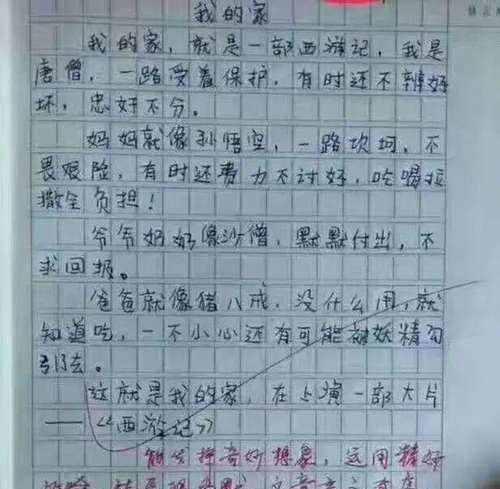 我的家
我的家,就是一部西游记,我是
唐僧,一路受着保护,有时还不辨好
坏,忠奸不分。
妈妈就像孙悟空,一路坎坷,不
畏艰险,有时还费力不讨好,吃喝拉
撒全负担!
爷爷奶奶像沙僧,默默付出,不
求回报。
爸爸就像猪八戒,没什么用,就
知道吃,一不小心还有可能被妖精勾
引去。
这就是我的家,在上演一部大片
——《西游记》
能发挥奇妙想象,运用精妙